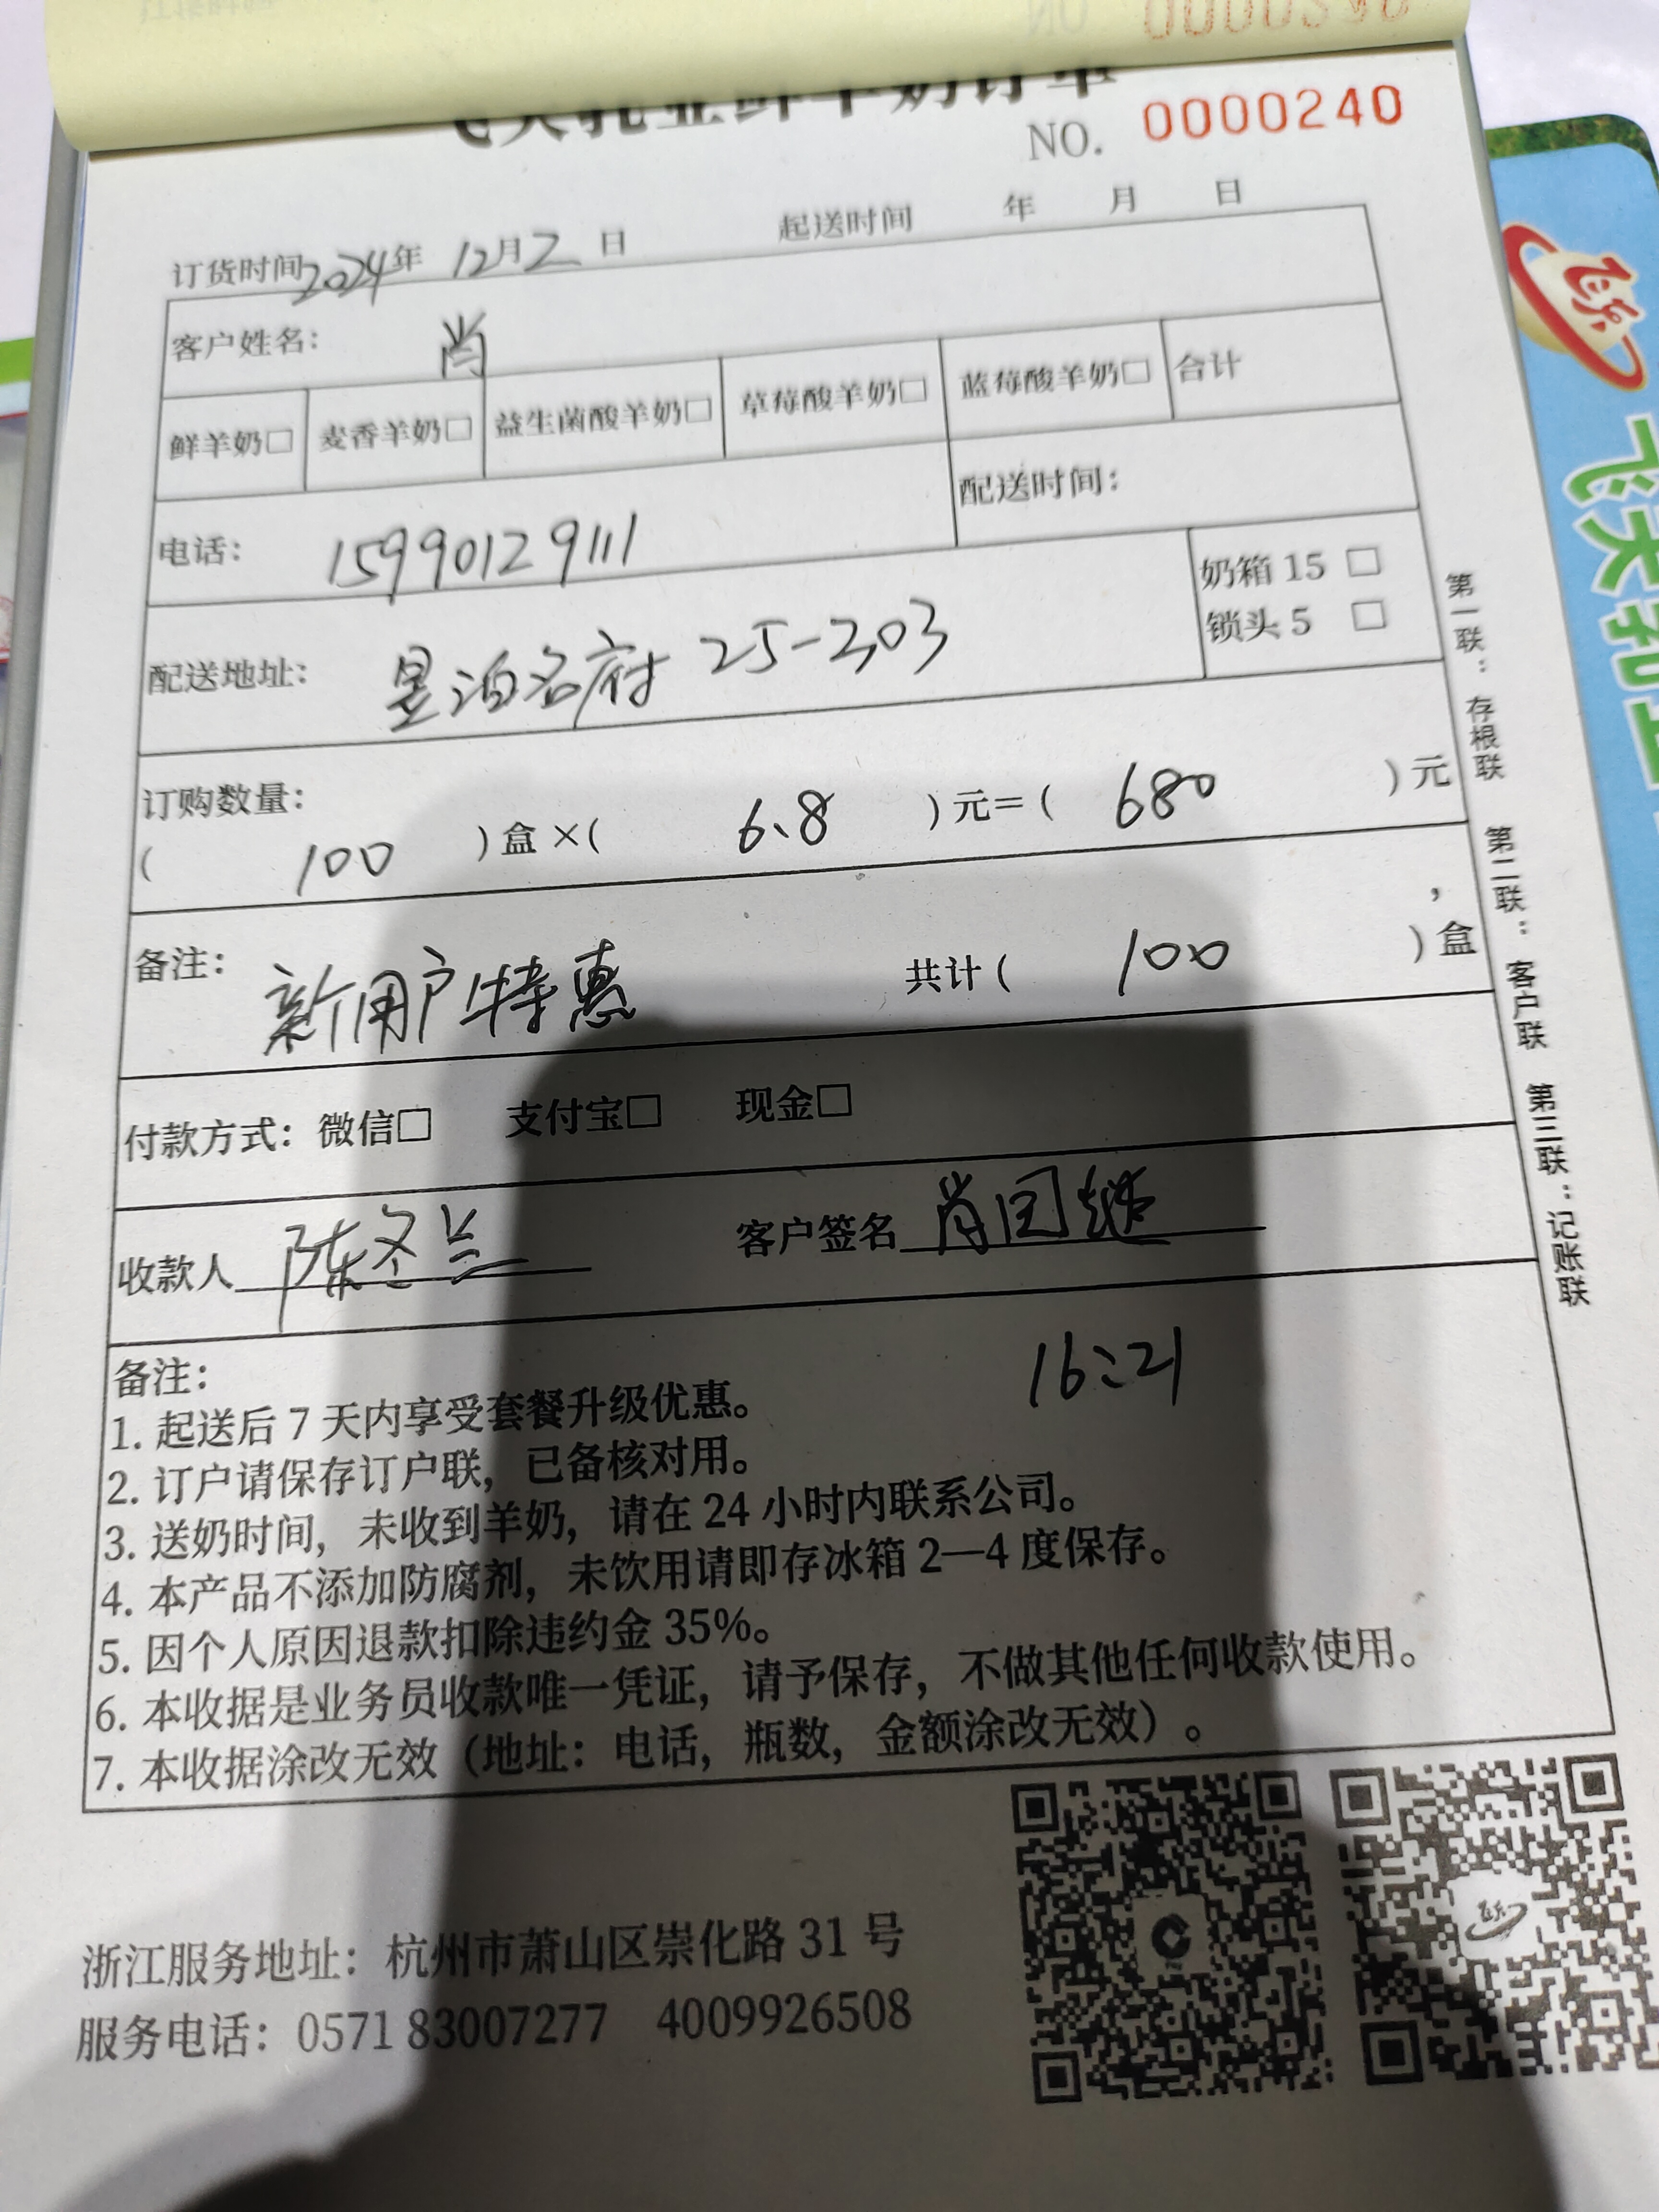 飞天乳业鲜羊奶订单
NO. 0000240
订货时间2024年 12月2日 起送时间 年 月 日
客户姓名: 肖
鲜羊奶□ 麦香羊奶□ 益生菌酸羊奶□ 草莓酸羊奶□ 蓝莓酸羊奶□ 合计
电话: 15990129111 配送时间:
配送地址: 星泊名府 25-203
奶箱 15 □
锁头 5 □
订购数量:
( 100 )盒×( 6.8 )元=( 680 )元
,
备注: 新用户特惠 共计( 100 )盒
付款方式: 微信□ 支付宝□ 现金□
收款人 陈冬兰 客户签名 肖国继
16:21
备注:
1. 起送后 7 天内享受套餐升级优惠。
2. 订户请保存订户联, 已备核对用。
3. 送奶时间, 未收到羊奶, 请在 24 小时内联系公司。
4. 本产品不添加防腐剂, 未饮用请即存冰箱 2—4 度保存。
5. 因个人原因退款扣除违约金 35%。
6. 本收据是业务员收款唯一凭证, 请予保存, 不做其他任何收款使用。
7. 本收据涂改无效(地址: 电话, 瓶数, 金额涂改无效)。
第一联: 存根联 第二联: 客户联 第三联: 记账联
浙江服务地址: 杭州市萧山区崇化路 31 号
服务电话: 0571 83007277 4009926508
飞天
飞天乳业